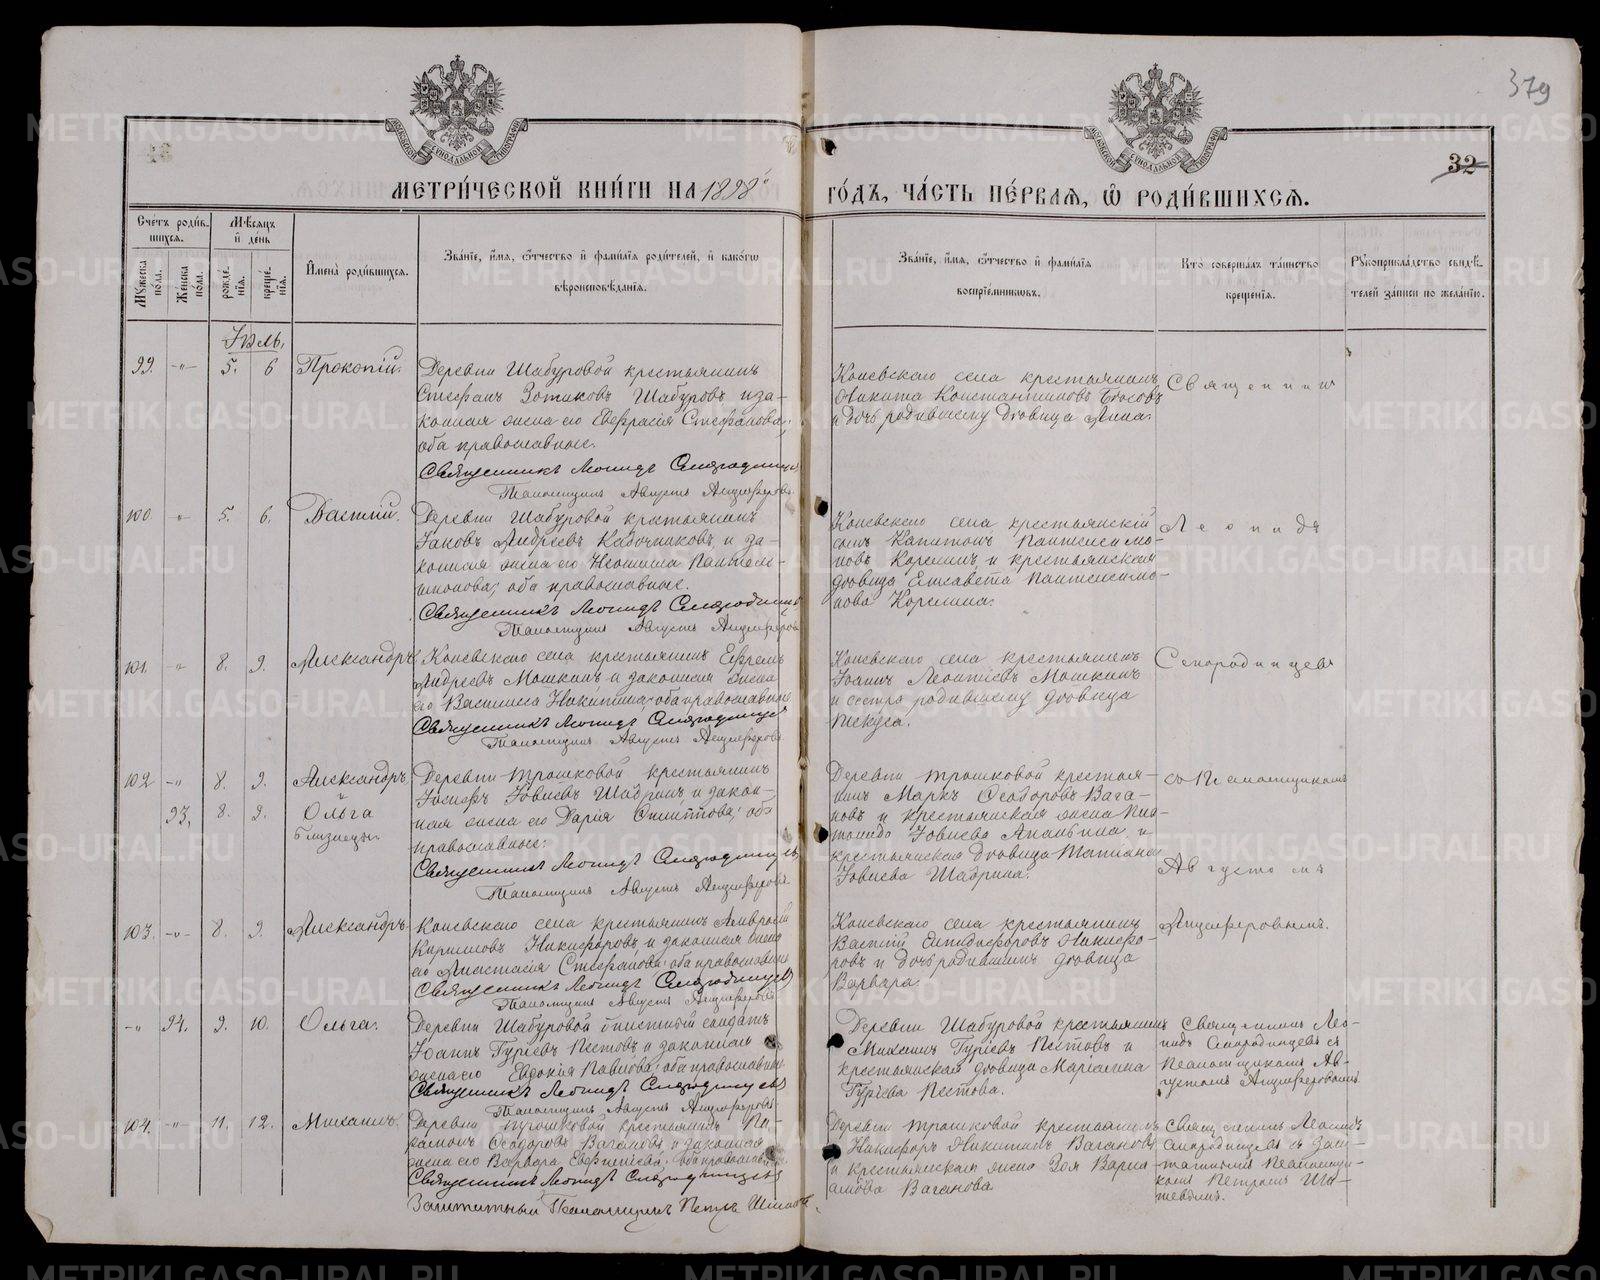 379
32
МОСКОВСКОЙ СѴНОДАЛЬНОЙ ТИПОГРАФІИ
МОСКОВСКОЙ СѴНОДАЛЬНОЙ ТИПОГРАФІИ
МЕТРИ́ЧЕСКОЙ КНИ́ГИ НА 1898 й ГО́ДЪ, ЧА́СТЬ ПЕ́РВАЯ, Ѡ РОДИ́ВШИХСЯ.
Сче́тъ роди́в-
шихся.
Мꙋжеска по́ла.
Же́нска по́ла.
Мѣ́сяцъ и҆ де́нь
рожде́-
нїя.
креще́-
нїя.
И҆мена̀ роди́вшихся.
Зва́нїе, и҆́мя, ѻ҆́тчество и҆ фами́лїя роди́телей, и҆ како́гѡ
вѣроисповѣ́данїя.
Зва́нїе, и҆́мя, ѻ҆́тчество и҆ фами́лїя
воспрїе́мникѡвъ.
Кто̀ соверша́лъ та́инство
креще́нїя.
Рꙋкоприкла́дство свидѣ́-
телей за́писи по жела́нїю.
Іюль.
99. -"- 5. 6 Прокопій.
Деревни Шабуровой крестьянинъ
Стефанъ Зотиковъ Шабуровъ и за-
конная жена его Евфрасія Стефанова;
оба православные.
Священникъ Леонидъ Смородинцевъ
Псаломщикъ Августъ Анциферовъ.
Коневскаго села крестьянинъ
Никита Константиновъ
и дочь родившему дѣвица Анна.
Священник
100. -"- 5. 6. Василій.
Деревни Шабуровой крестьянинъ
Іаковъ Андреевъ и за-
конная жена его Неонила Пантеле-
имонова; оба православные.
Священникъ Леонидъ Смородинцевъ
Псаломщикъ Августъ Анциферовъ
Коневскаго села крестьянскій
сынъ Капитонъ Пантелеимо-
новъ Корелинъ и крестьянская
дѣвица Елисавета Пантелеимо-
нова Корелина.
Леонидъ
101. -"- 8. 9. Александръ
Коневскаго села крестьянинъ Ефремъ
Андреевъ Мошкинъ и законная жена
его Василиса Никитина; оба православные
Священникъ Леонидъ Смородинцевъ
Псаломщикъ Августъ Анциферовъ
Коневскаго села крестьянинъ
Іоаннъ Леонтіевъ Мошкинъ
и сестра родившему дѣвица
Текуса.
Смородинцевъ
102 -"- 8. 9. Александръ
и
93. 8. 9. Ольга
близнецы.
Деревни Трошковой крестьянинъ
Іосифъ Іовлевъ Шабринъ и закон-
ная жена его Дарія Филиппова; оба
православные.
Священникъ Леонидъ Смородинцевъ
Псаломщикъ Августъ Анциферовъ
Деревни Трошковой крестья-
нинъ Маркъ Ѳеодоровъ Вага-
новъ и крестьянская жена
Іовлева и
крестьянская дѣвица Татіана
Іовлева Шабрина.
съ Псаломщикомъ
Августомъ
103. -"- 8. 9. Александръ
Коневскаго села крестьянинъ Амвросій
Кирилловъ Никифоровъ и законная жена
его Анастасія Стефанова; оба православные
Священникъ Леонидъ Смородинцевъ
Псаломщикъ Августъ Анциферовъ
Коневскаго села крестьянинъ
Василій Никифо-
ровъ и дочь родившимъ дѣвица
Варвара.
Анциферовымъ.
-"- 94. 9. 10. Ольга.
Деревни Шабуровой билетный солдатъ
Іоаннъ Гуріевъ Пестовъ и законная
жена его Евдокія Павлова; оба православные
Священникъ Леонидъ Смородинцевъ
Псаломщикъ Августъ Анциферовъ
Деревни Шабуровой крестьянинъ
Михаилъ Гуріевъ Пестовъ и
крестьянская дѣвица Маріамна
Гуріева Пестова.
Священникъ Лео-
нидъ Смородинцевъ съ
Псаломщикомъ Ав-
густомъ Анциферовымъ
104. -"- 11. 12. Михаилъ.
Деревни Трошковой крестьянинъ Па-
рамонъ Ѳеодоровъ Вагановъ и законная
жена его Варвара Евгеніева; оба православные
Священникъ Леонидъ Смородинцевъ
Заштатный Псаломщикъ Петръ
Деревни Трошковой крестьянинъ
Никифоръ Никитинъ Вагановъ
и крестьянская жена Зоя Варла-
амова Ваганова
Священникъ Леонидъ
Смородинцевъ съ Заш-
татнымъ Псаломщи-
комъ Петромъ
METRIKI.GASO-URAL.RU